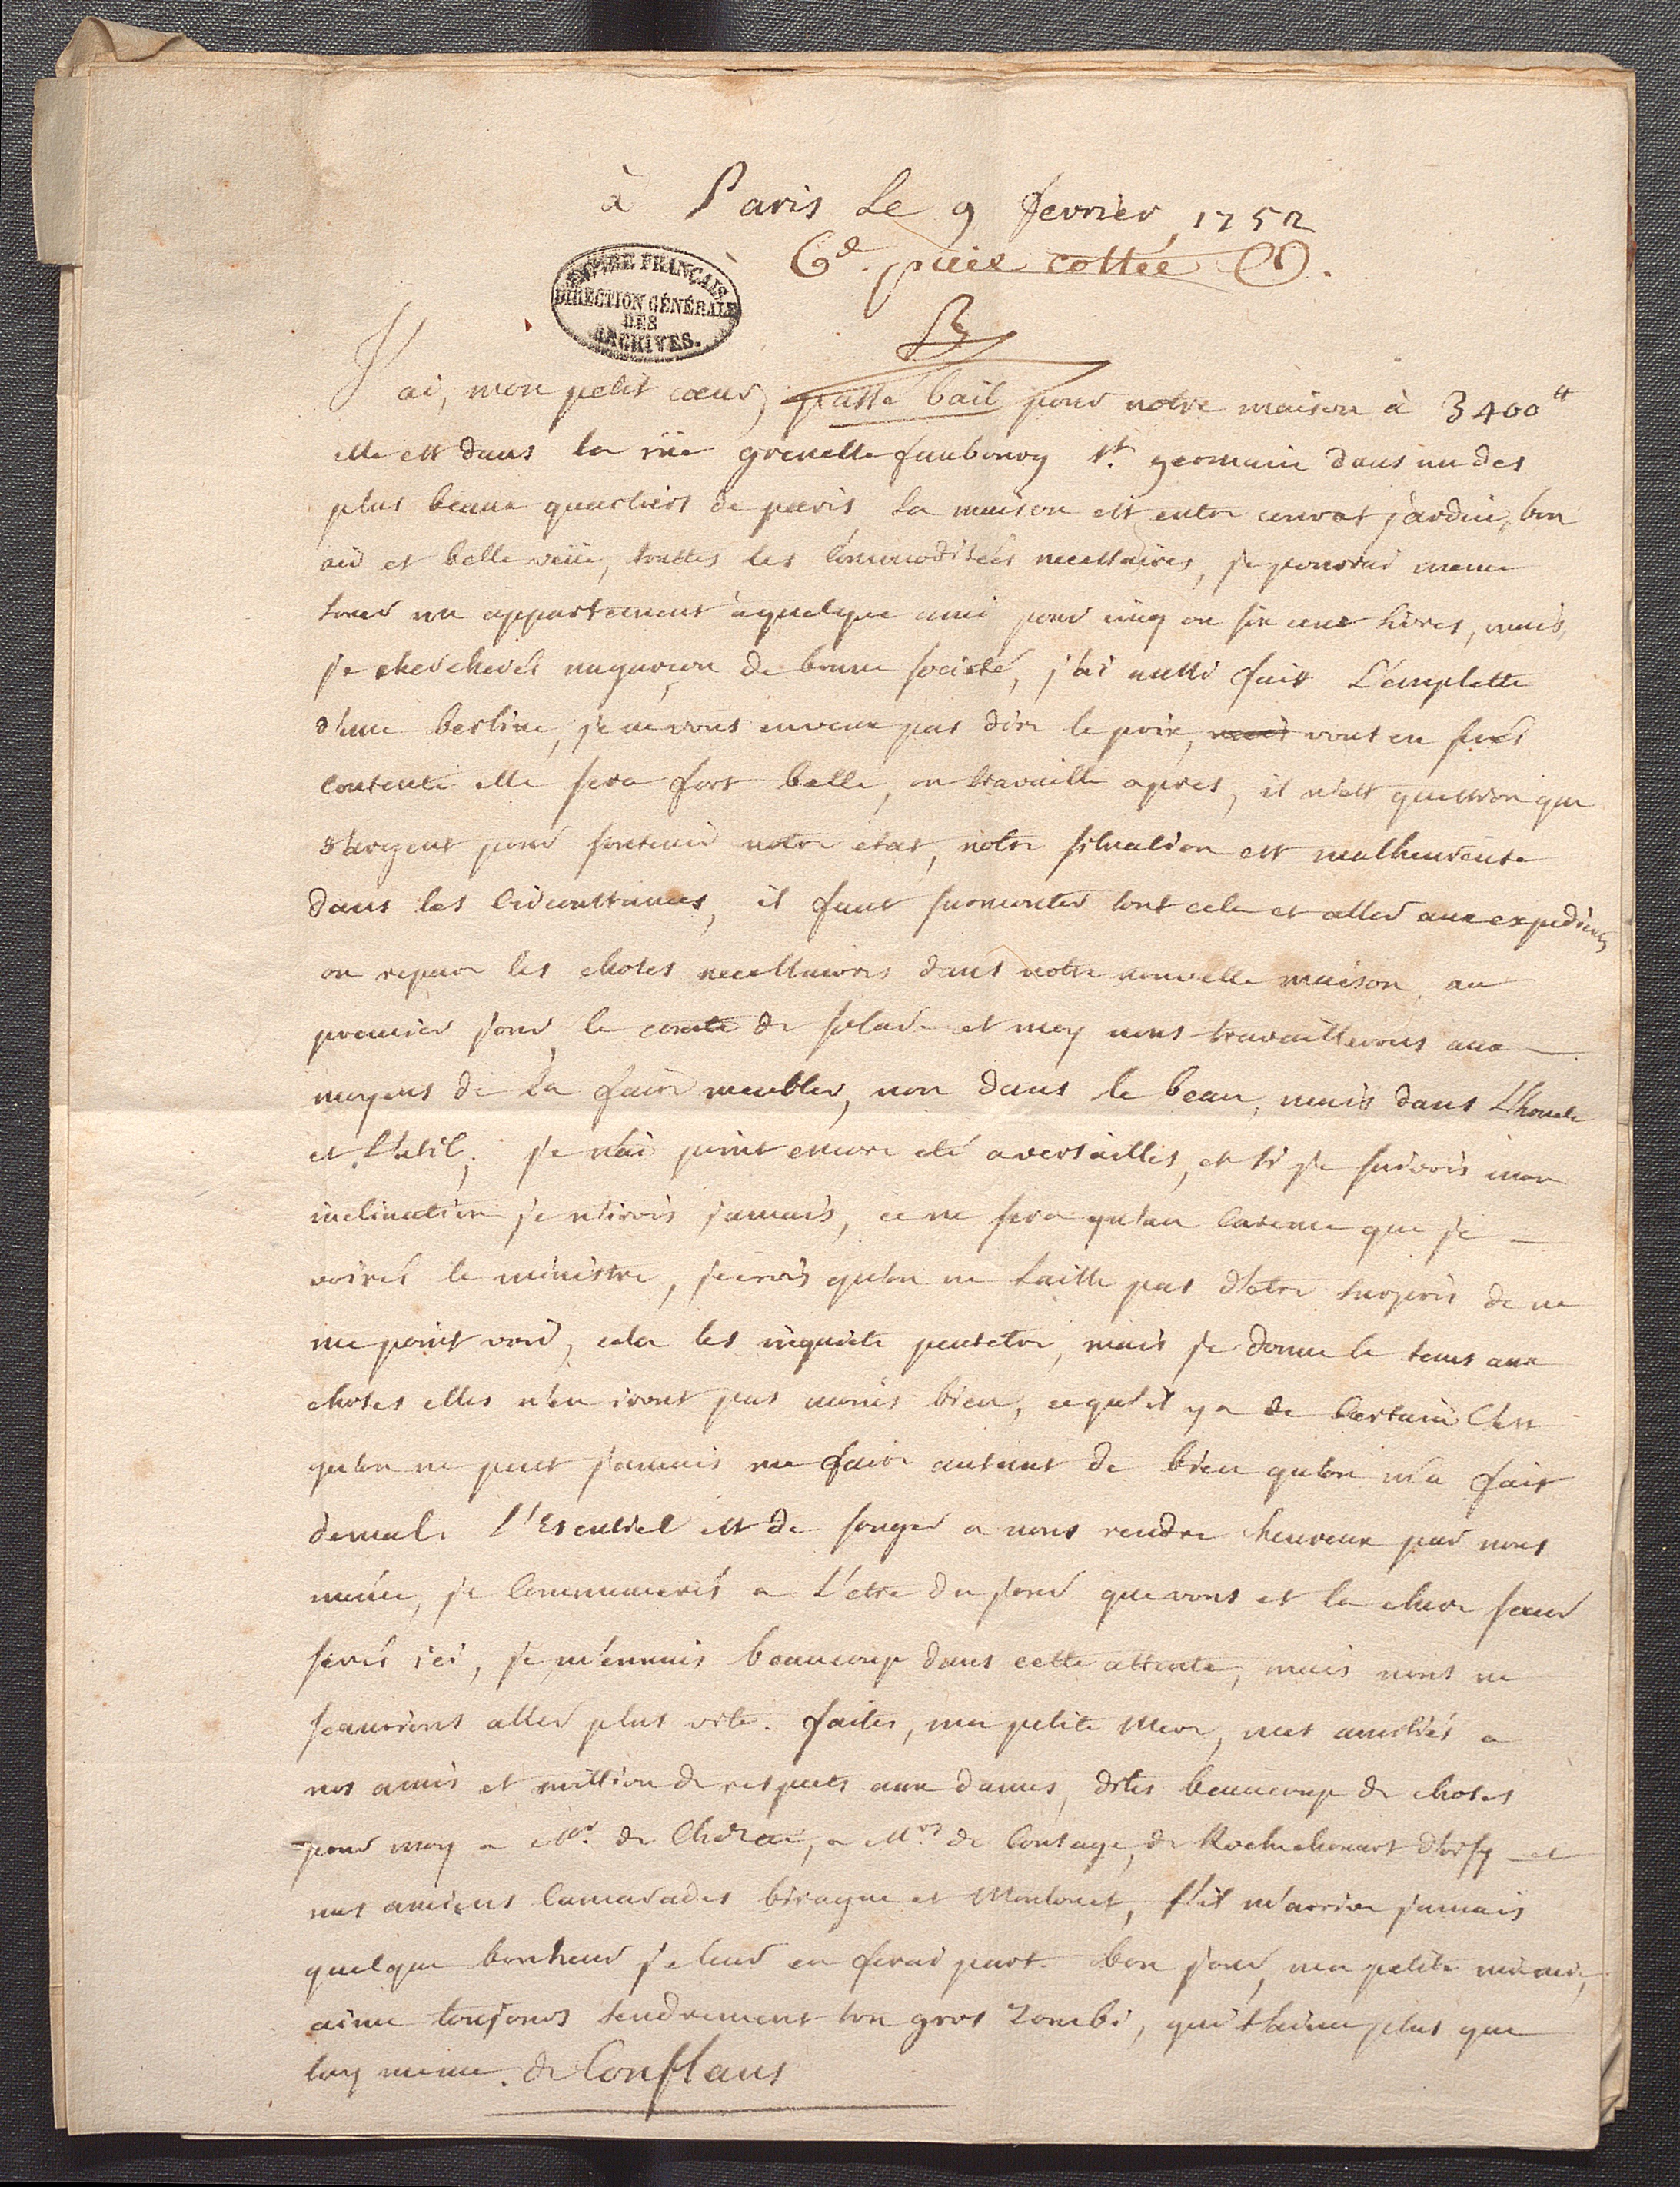 à Paris Le 9 fevrier 1752
6e. piéce cottée
EMPIRE FRANÇAIS
DIRECTION GÉNÉRALE
DES
ARCHIVES.
J'ai, mon petit cœur, passé bail pour notre maison à 3400 ₶
elle est dans la rüe grenelle faubourg st. germain dans un des
plus beaux quartiers de paris, la maison est entre cour et jardin, bon
air et belle veüe, touttes les Commoditeés necessaires, je pourrai meme
louer un appartement aquelque ami pour cinq ou six cent livres, mais
je chercherés ungarçon de bonne societé, j'ai aussi fait L'emplette
d'une berline, je ne vous enveux pas dire le prix, vous en serés
contente elle sera fort belle, on travaille apres, il n'est question que
d'argent pour soutenir notre etat, notre situation est malheureuse
dans les Circonstances, il faut surmonter tout cela et aller aux expediens
on repare les choses necessaires dans notre nouvelle maison, au
premier jour le comte de et moy nous travaillerons aux
moyens de la faire meubler, non dans le beau, mais dans L'honete
et L'util; je n'ai point encore eté aversailles, et si je suivois mon
inclination je n'irois jamais, ce ne sera qu'au Careme que je
voirés le ministre, jecrois qu'on ne laisse pas d'etre surpris de ne
me point voir, cela les inquiete peutetre, mais je donne le tems aux
choses elles n'en iront pas moins bien, cequ'il y a de Certain C'est
qu'on ne peut jamais me faire autant de bien qu'on m'a fait
demal. l'Esentiel est de songer a nous rendre heureux par nous
meme, je Commencerés a L'etre du jour que vous et la chere sœur
serés ici, je m'ennuis beaucoup dans cette attente, mais nous ne
scaurions aller plus vite. faites, ma petite Mere, mes amitiés a
nos amis et million de respects aux dames, dites beaucoup de choses
pour moy a Mr. de Chirac, a Mrs de Contage, de Rochechouart d'orsy et
mes anciens Camarades birague et Monlouet, s'il m'arrive jamais
quelque bonheur je leur en ferai part. bon jour, ma petite mimie,
aime toujours tendrement ton gros Zombi, qui t'aime plus que
luy meme. de Conflans